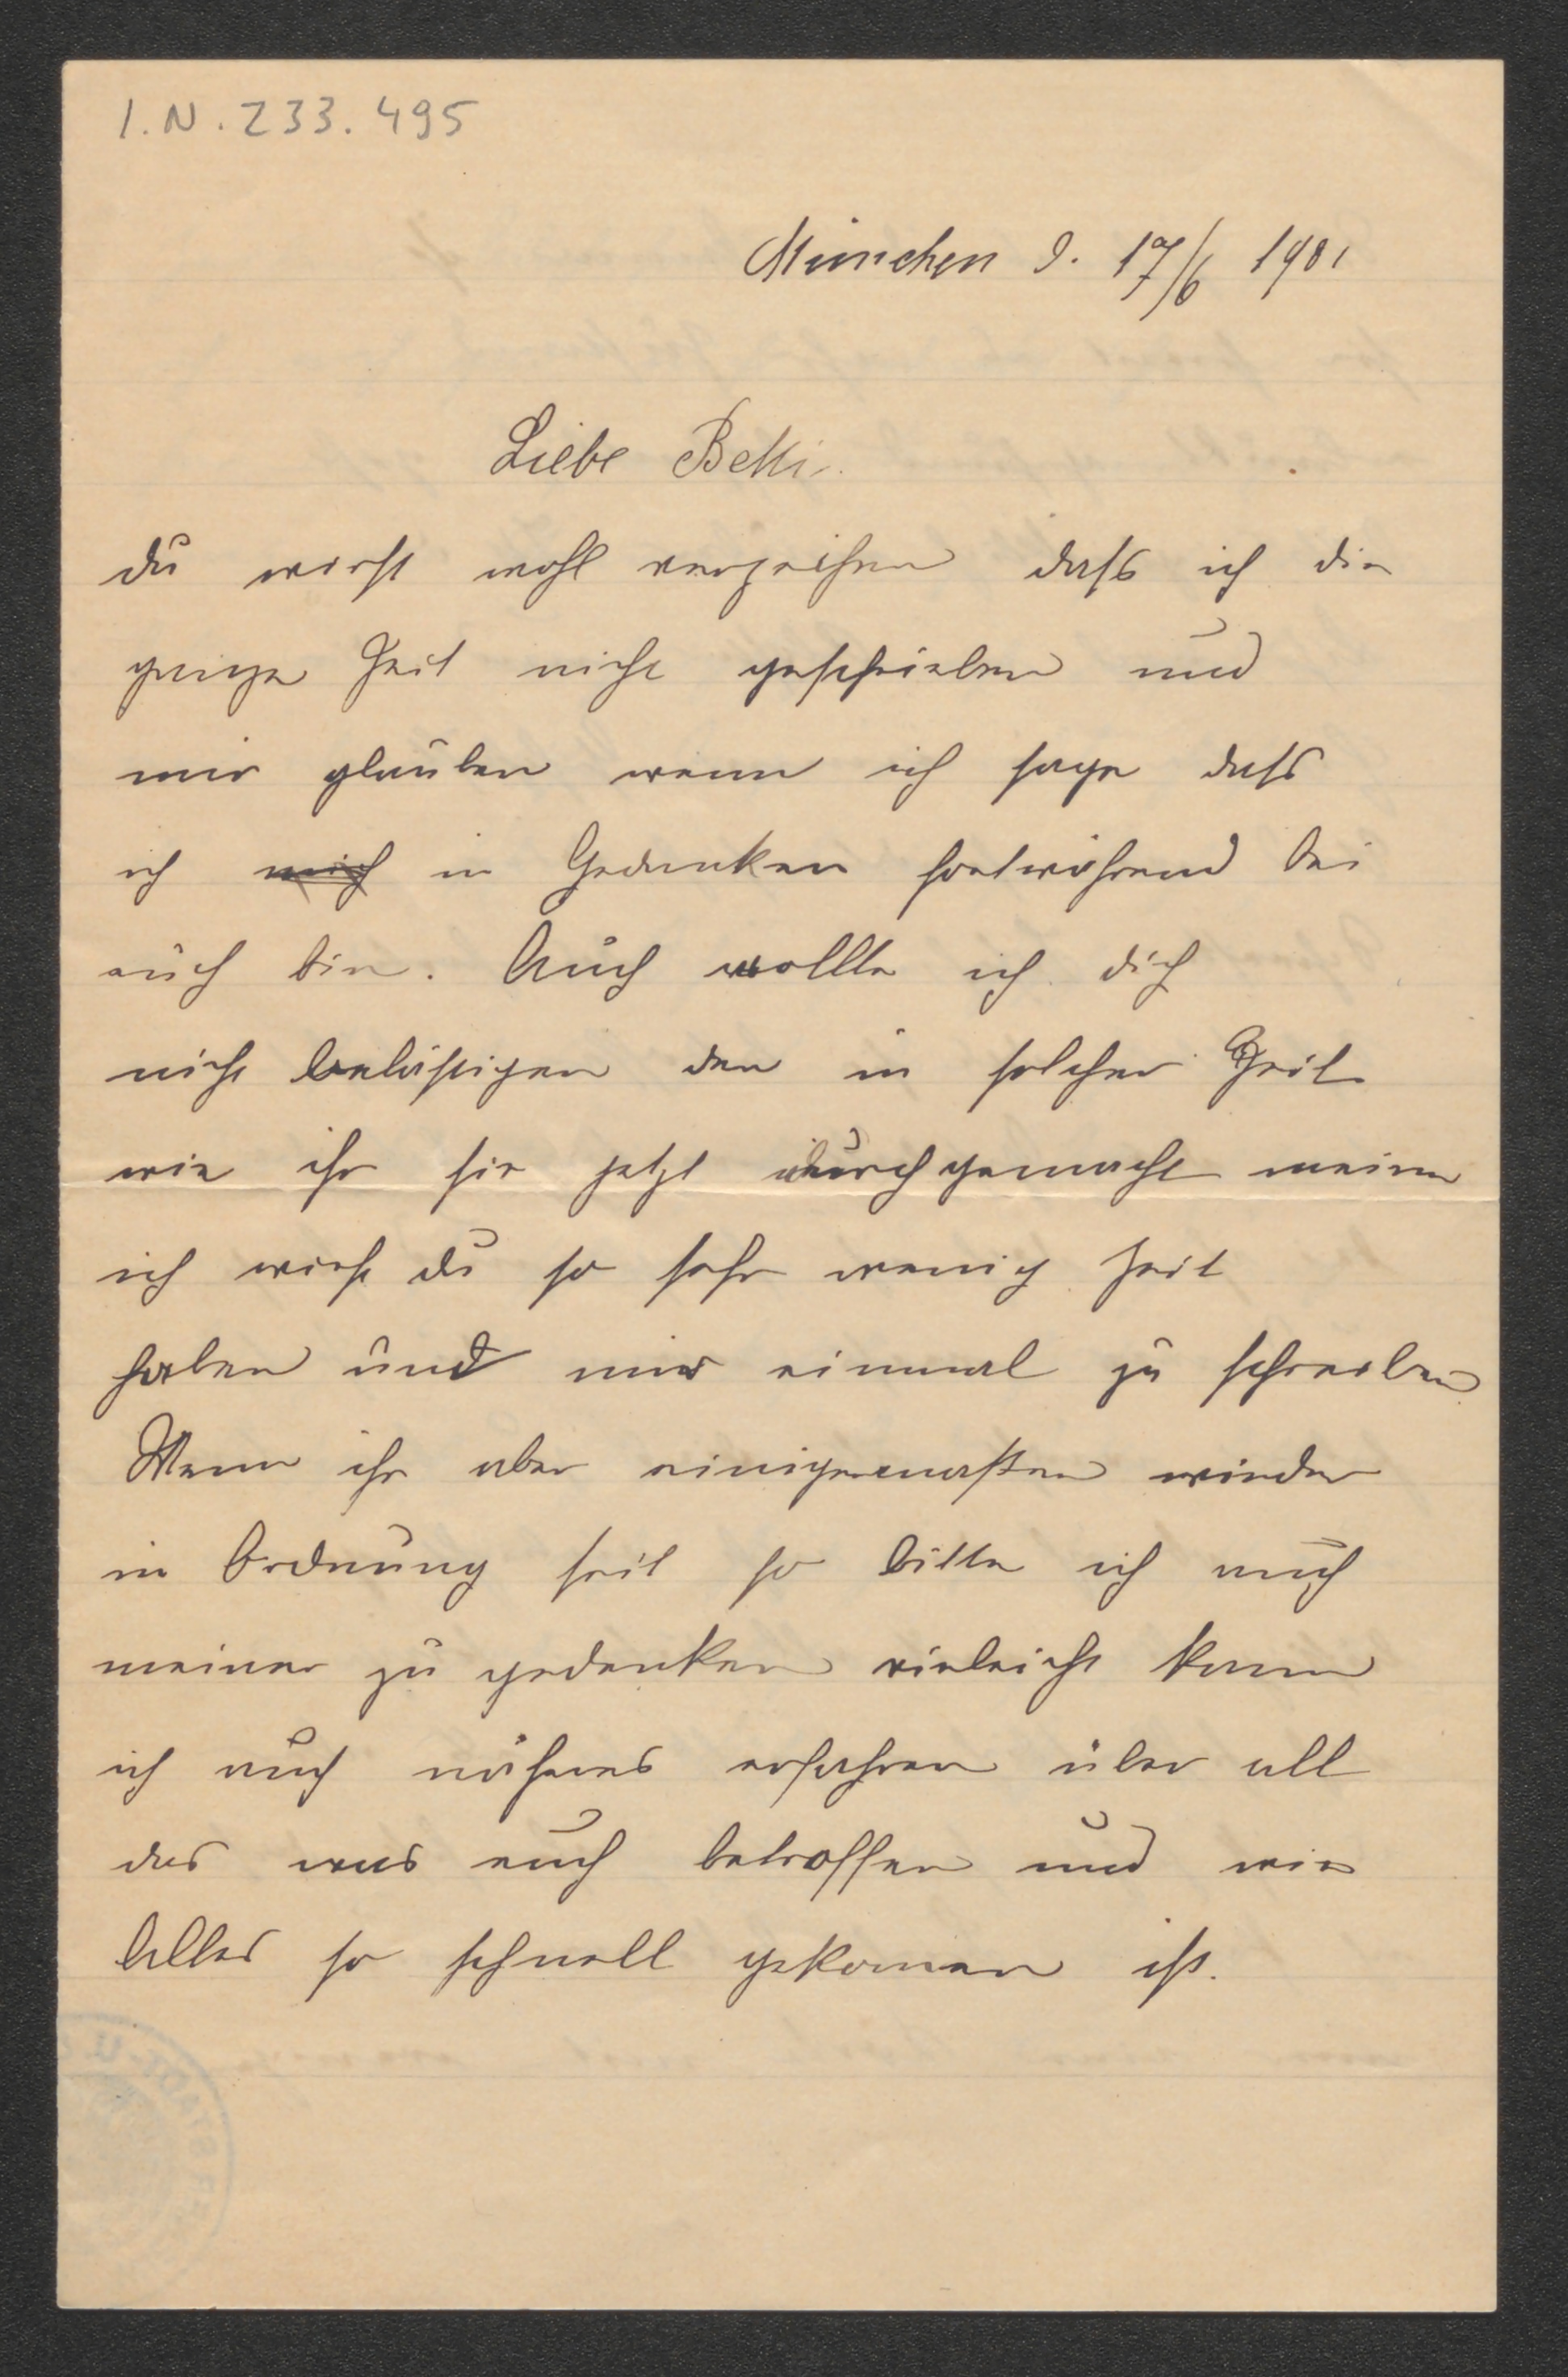 I.N. 233.495
München d. 17/6 1901
Liebe Betti.
du wirst wohl verzeihen daſs ich die
ganze Zeit nicht geschrieben und
mir glauben wenn ich sage daſs
ich mich in Gedanken fortwährend bei
euch bin. Auch wollte ich dich
nicht belästigen den in solcher Zeit
wie ihr sie jetzt durchgemacht meine
ich wirst du so sehr wenig Zeit
haben und mir einmal zu schreiben
Wenn ihr aber einigermaßen wieder
in Ordnung seit so bitte ich auch
meiner zu gedenken vieleicht kann
ich auch näheres erfahren über all
das was euch betroffen und wie
Alles so schnell gekomen ist.